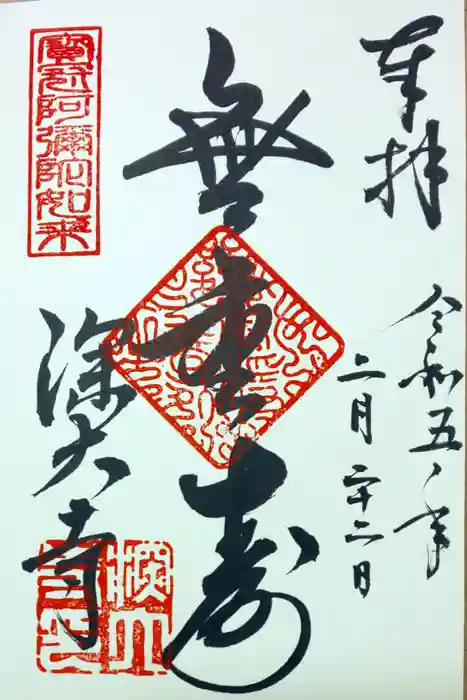 奉拝
令和五年
二月二十二日
無量寿
寳冠阿彌陀如来
深大寺